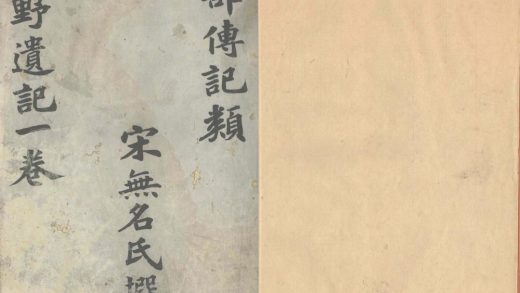 部傳記類
宋無名氏撰
野遺記一卷